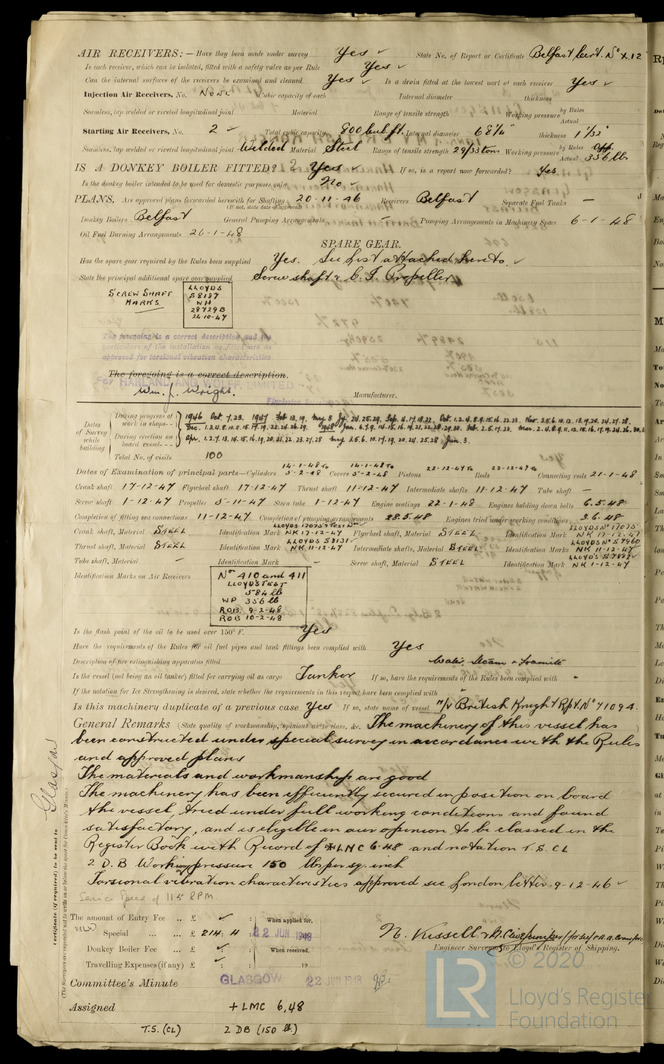 AIR RECEIVERS:— Have they been made under survey Yes ✓ State No. of Report or Certificate Belfast Cert. No X.12
Is each receiver, which can be isolated, fitted with a safety valve as per Rule Yes ✓
Can the internal surfaces of the receivers be examined and cleaned Yes ✓ Is a drain fitted at the lowest part of each receiver Yes ✓
Injection Air Receivers, No. None Cubic capacity of each Internal diameter thickness
Seamless, lap welded or riveted longitudinal joint Material Range of tensile strength Working pressure by Rules Actual
Starting Air Receivers, No. 2 ✓ Total cubic capacity 800 cub ft. Internal diameter thickness
Seamless, lap welded or riveted longitudinal joint Welded Material Steel Range of tensile strength 29/33 tons Working pressure by Rules App. Actual 356 lb
IS A DONKEY BOILER FITTED? Yes ✓ If so, is a report now forwarded? Yes.
Is the donkey boiler intended to be used for domestic purposes only No ✓
PLANS. Are approved plans forwarded herewith for Shafting 20-11-46 Receivers Belfast Separate Fuel Tanks —
(If not, state date of approval)
Donkey Boilers Belfast General Pumping Arrangements — Pumping Arrangements in Machinery Space 6-1-48
Oil Fuel Burning Arrangements 26-1-48
SPARE GEAR.
Has the spare gear required by the Rules been supplied Yes. See List attached hereto. ✓
State the principal additional spare gear supplied Screw shaft & C.I. Propeller
SCREW SHAFT MARKS
LLOYDS
WH
28729B
24-10-47
The foregoing is a correct description and the
particulars of the installation as fitted are as
approved for torsional vibration characteristics
The foregoing is a correct description.
For HARLAND AND WOLFF, LIMITED
Wm. J. Wright. Manufacturer.
Dates of Survey while building
During progress of work in shops - -
During erection on board vessel - - -
Total No. of visits 100
Dates of Examination of principal parts—Cylinders 14-1-48 to 5-2-48 Covers 14-1-48 to 5-2-48 Pistons 22-12-47 Rods 22-12-47 Connecting rods 21-1-48
Crank shaft 17-12-47 Flywheel shaft 17-12-47 Thrust shaft 11-12-47 Intermediate shafts 11-12-47 Tube shaft —
Screw shaft 1-12-47 Propeller 5-11-47 Stern tube 1-12-47 Engine seatings 22-1-48 Engines holding down bolts 6.5.48
Completion of fitting sea connections 11-12-47 Completion of pumping arrangements 28.5.48 Engines tried under working conditions 3.6.48
Crank shaft, Material STEEL Identification Mark NK 17-12-47 Flywheel shaft, Material STEEL Identification Mark NK 17-12-47
Thrust shaft, Material STEEL Identification Mark NK 11-12-47 Intermediate shafts, Material STEEL Identification Marks NK 11-12-47
Tube shaft, Material — Identification Mark — Screw shaft, Material STEEL Identification Mark NK 1-12-47
Identification Marks on Air Receivers
Nos 410 and 411
LLOYDS TEST
584 lb
WP 356 lb
ROB. 9-2-48
ROB 10-2-48
Is the flash point of the oil to be used over 150° F. Yes
Have the requirements of the Rules for oil fuel pipes and tank fittings been complied with Yes
Description of fire extinguishing apparatus fitted Water, Steam & Foamite
Is the vessel (not being an oil tanker) fitted for carrying oil as cargo Tanker If so, have the requirements of the Rules been complied with
If the notation for Ice Strengthening is desired, state whether the requirements in this respect have been complied with
Is this machinery duplicate of a previous case Yes If so, state name of vessel M/V British Knight Rpt No 71094.
General Remarks (State quality of workmanship, opinions as to class, &c. The machinery of this vessel has
been constructed under special survey in accordance with the Rules
and approved plans
The materials and workmanship are good
The machinery has been efficiently secured in position on board
the vessel, tried under full working conditions and found
satisfactory, and is eligible in our opinion to be classed in the
Register Book with Record of +LMC 6.48 and notation T.S. CL
2 D.B Working pressure 150 lb per sq. inch
Torsional vibration characteristics approved see London letter 9-12-46 ✓
Service speed of 115 RPM
Certificate (if required) to be sent to Glasgow
(The Surveyors are requested not to write on or below the space for Committee's Minute.)
The amount of Entry Fee .. £ ✓ : When applied for,
Special .. £ 214. 11 22 JUN 1948
Donkey Boiler Fee .. £ ✓ : When received,
Travelling Expenses (if any) £ ✓ : 19
Engineer Surveyor to Lloyd's Register of Shipping.
Committee's Minute GLASGOW 22 JUN 1948
Assigned + LMC 6,48
T.S. (CL) 2 DB (150 lb)
© 2020
LR
Lloyd's Register
Foundation